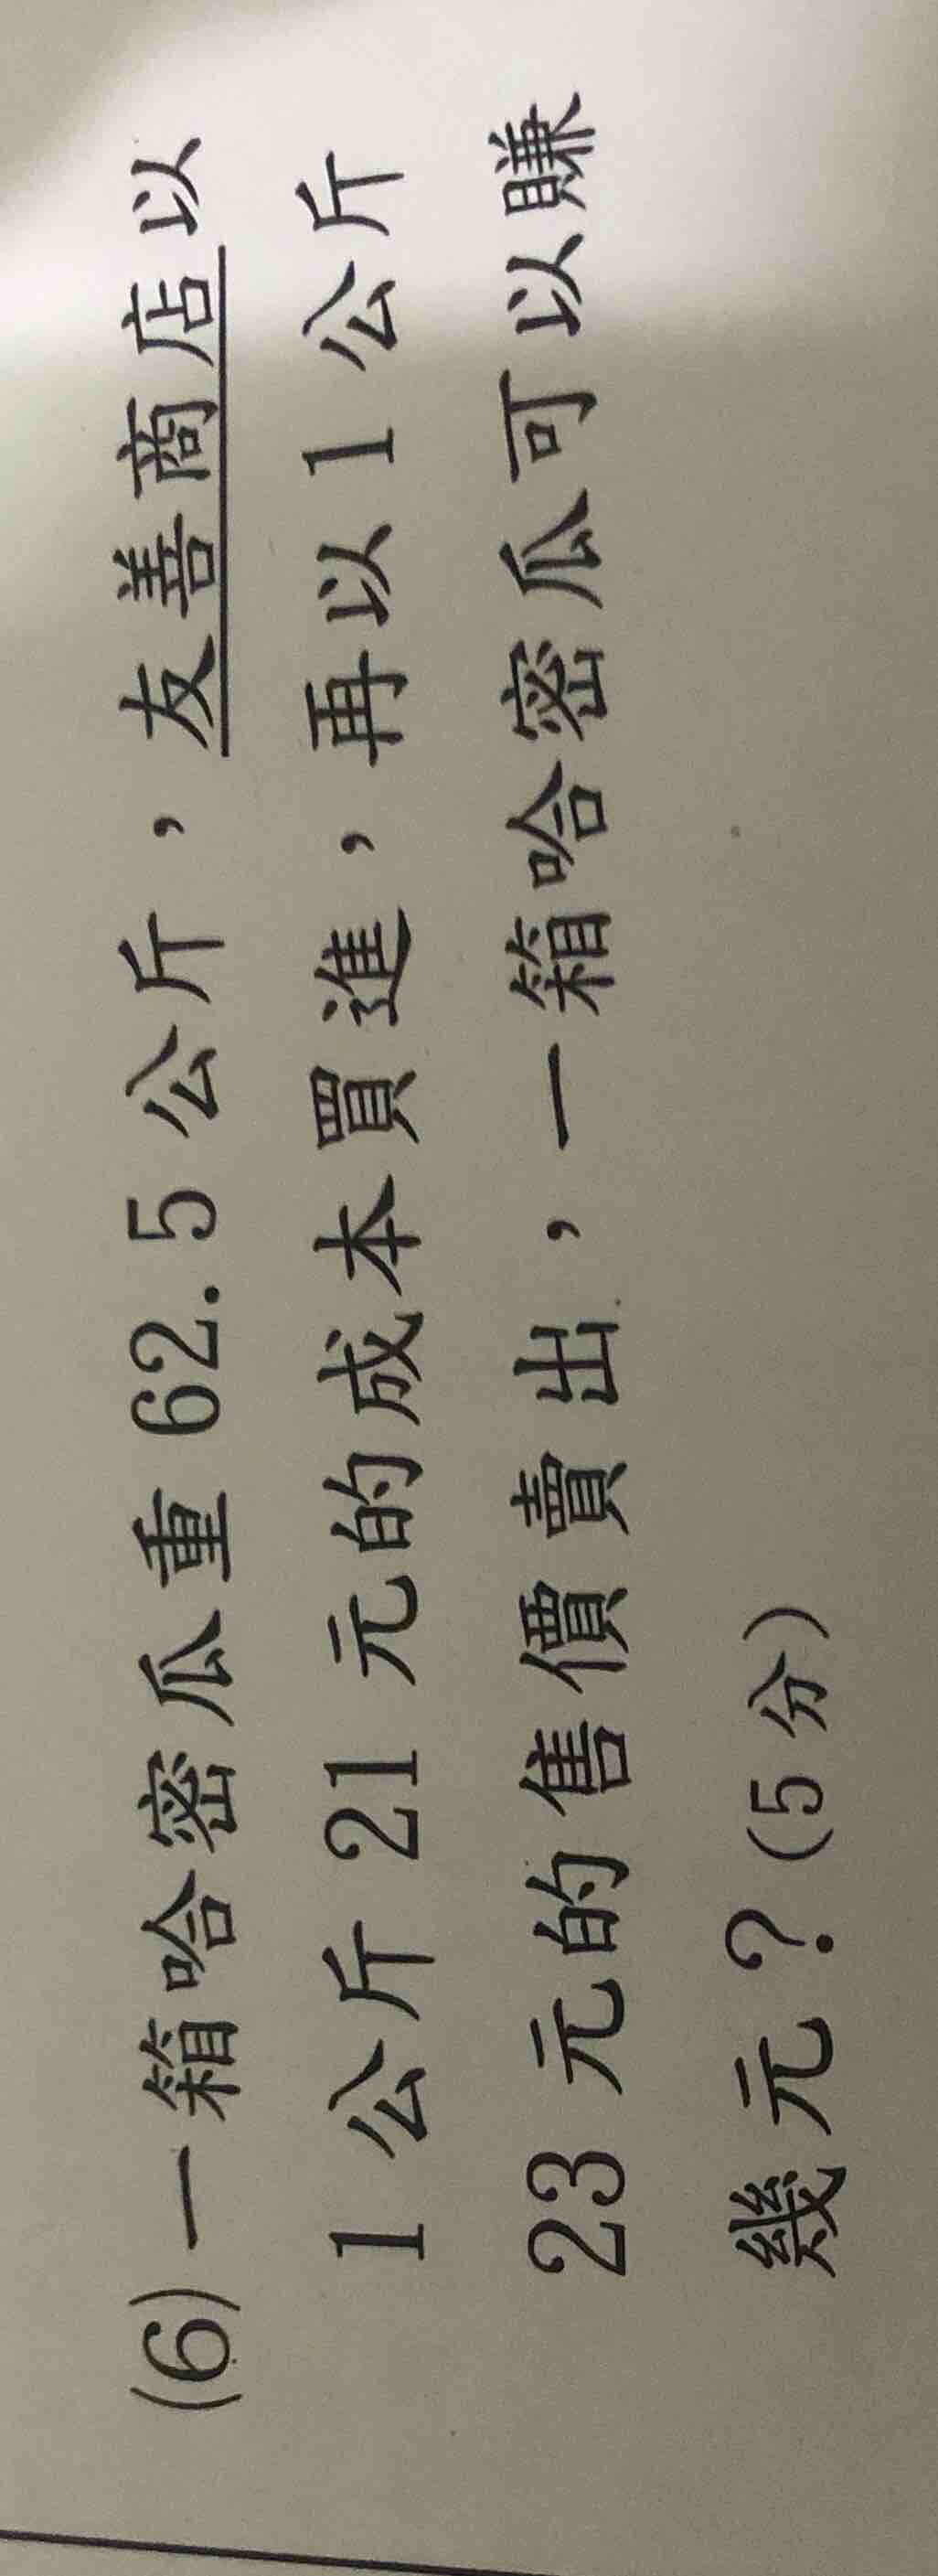 (6)一箱哈密瓜重 62.5 公斤，友善商店以
1 公斤 21 元的成本買進，再以 1 公斤
23 元的售價賣出，一箱哈密瓜可以賺
幾元？(5 分)